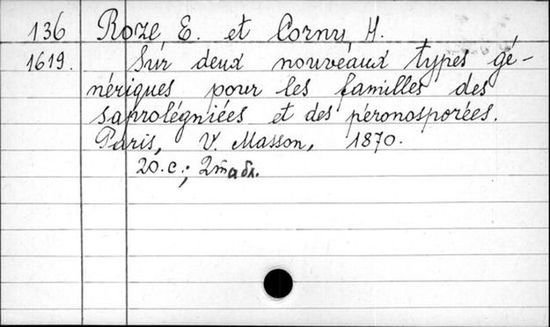 136 Roze E. et Cornu, H.
1619. Sur deux nouveaux types gé-
nériques pour les familles des
saprolégniées et des péronosporées.
Paris, V. Masson, 1870.
20.c.; 2